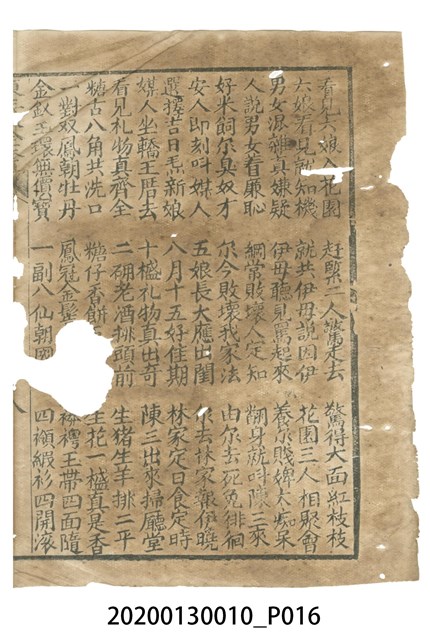 看見六娘入花園　赶緊二人驚走去　驚得大面紅枝枝
六娘看見就知機　就共伊母說因伊　花園三人相聚會
男女混雜真嫌疑　伊母聽見罵起來　養尔賤婢太痴呆
人說男女着廉恥　綱常敗壞人定知　翻身就叫陳三來
好米飼尔臭奴才　尔今敗壞我家法　由尔去死免徘徊
安人即刻叫媒人　五娘長大應出閨　去林家報伊曉
選擇吉日毛新娘　八月十五好佳期　林家定日食定時
媒人坐轎王厝去　十楹礼物真出奇　陳三出來掃廳堂
看見礼物真齊全　二硼老酒排頭前　生猪生羊排二平
糖占八角共洗口　糖仔香餅　生花一楹真是香
一對双鳳朝牡丹　鳳冠金　玉帶四面隨
金釵玉環無價寶　一副八仙朝國　四領緞衫四開滚
20200130010_P016